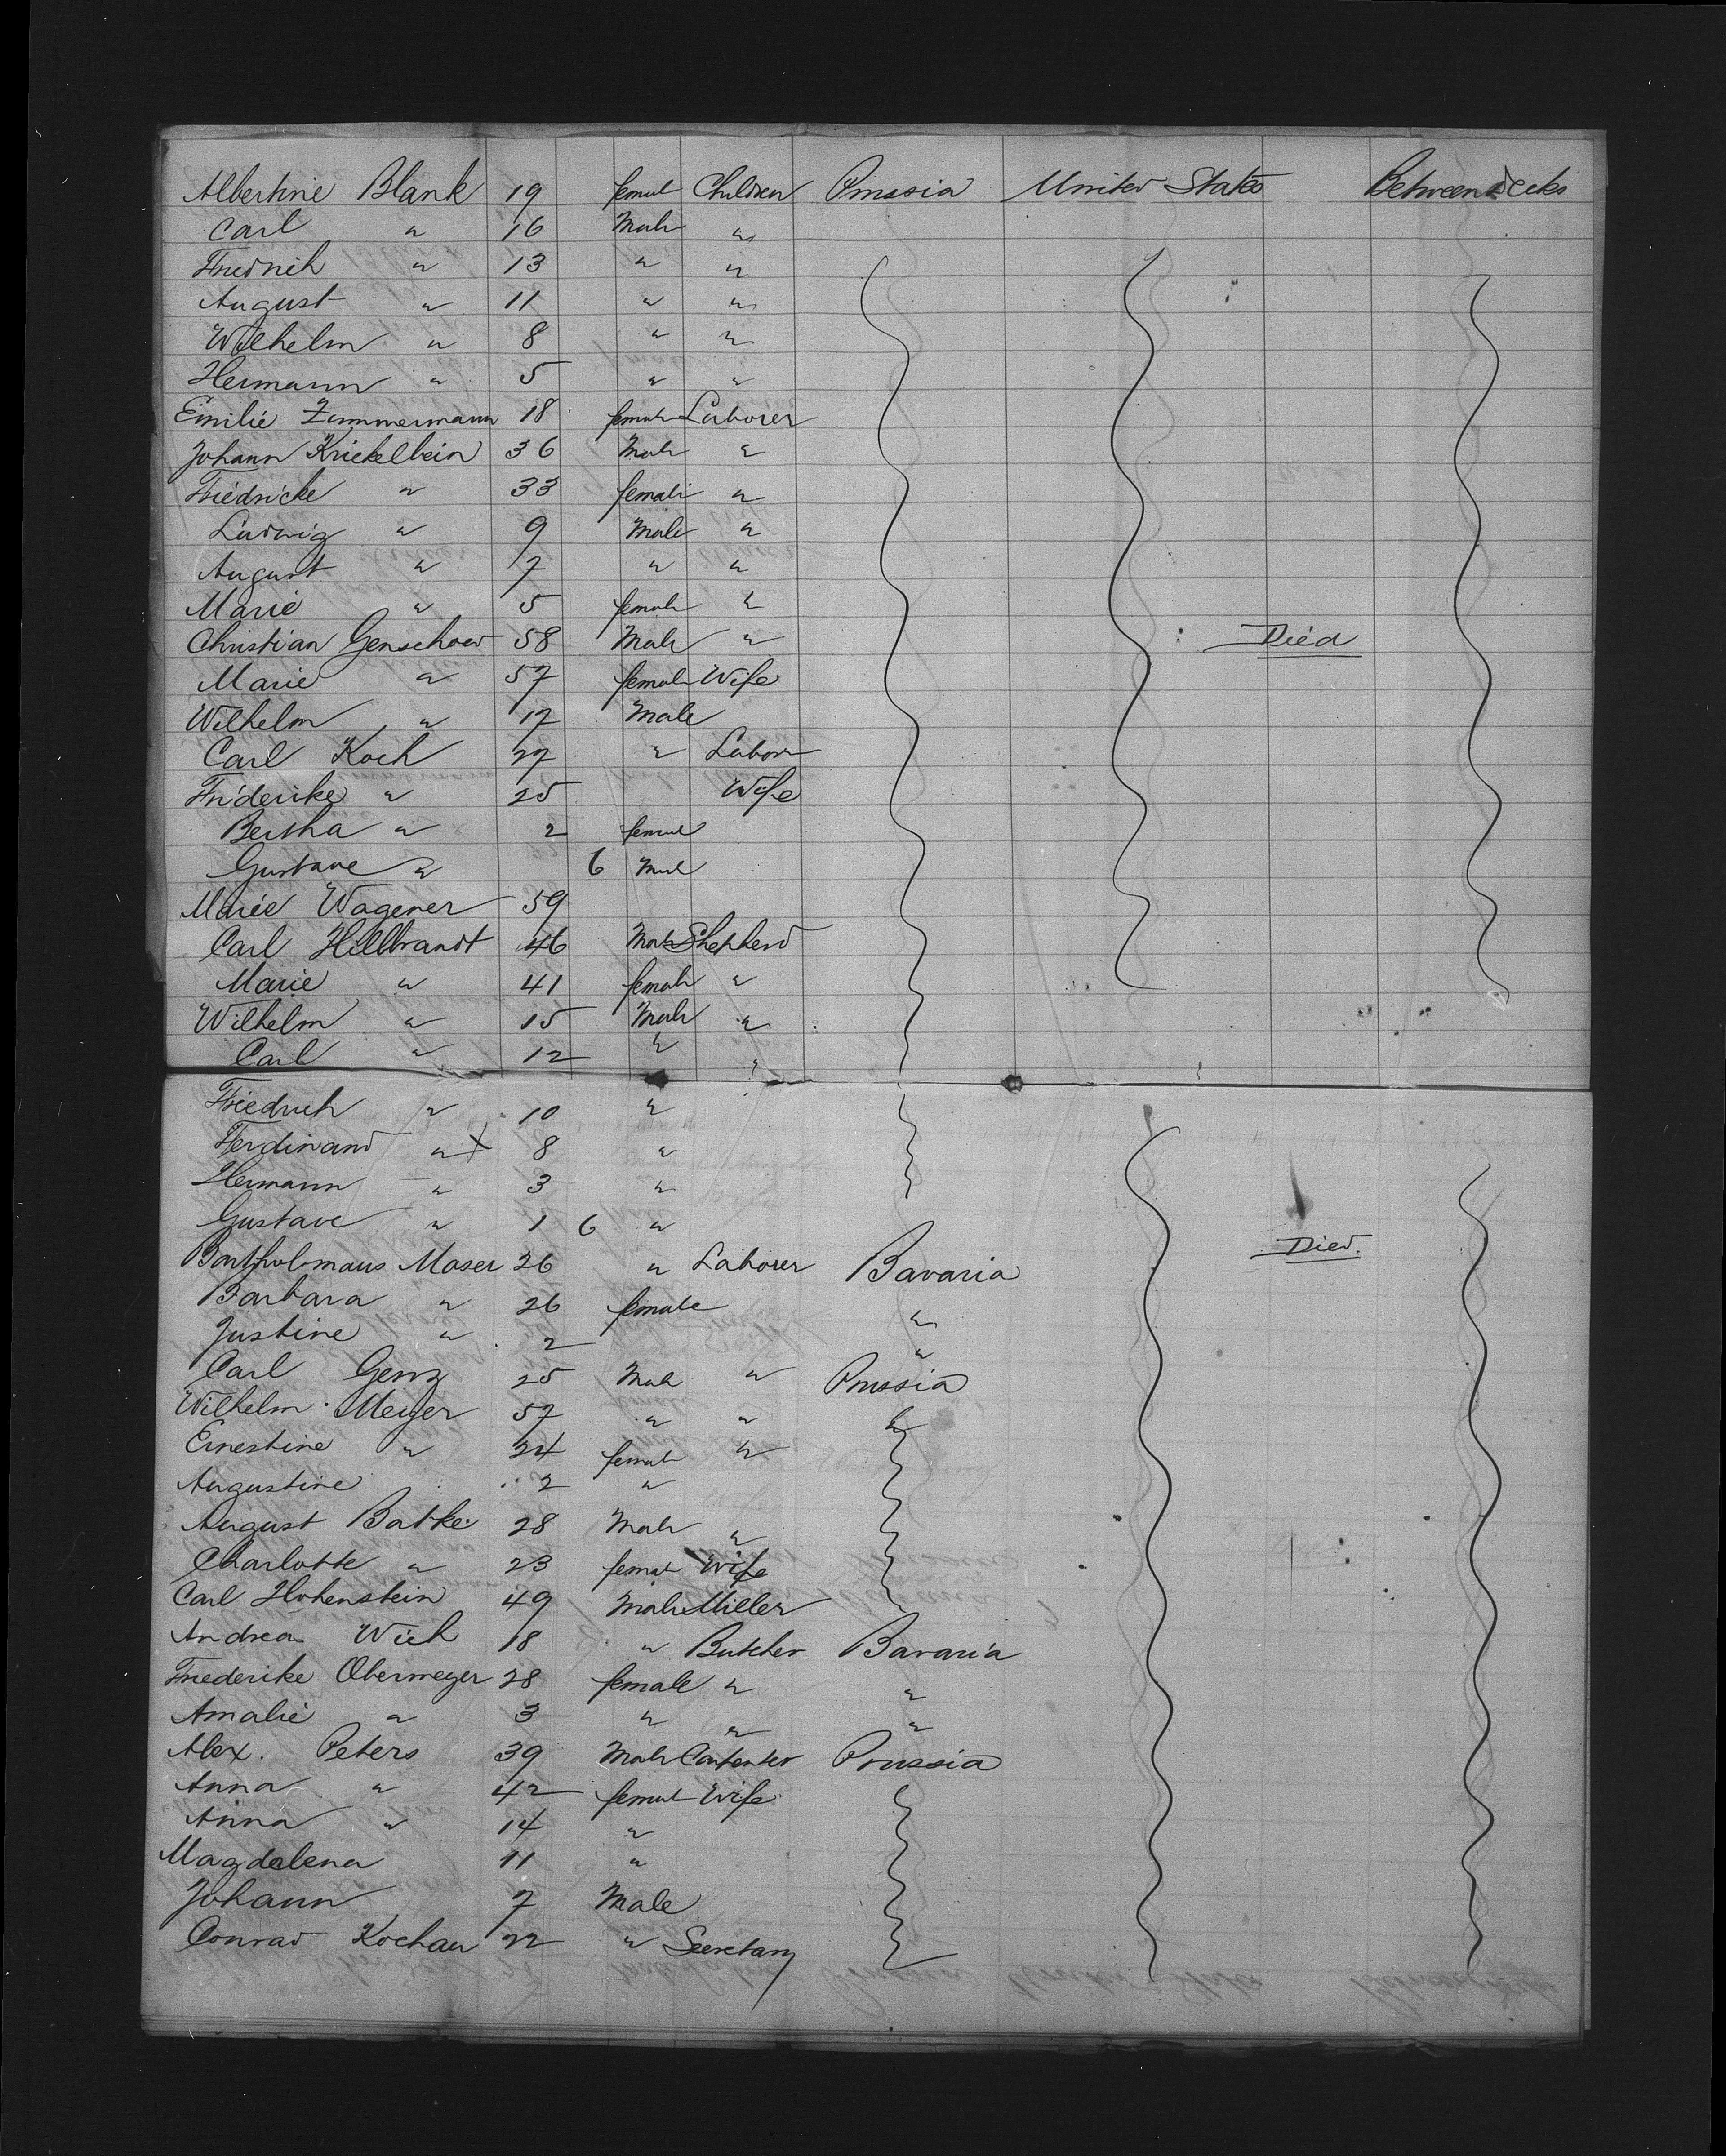 Albertine Blank 19 femal Children Prussia United States Betweendecks
Carl " 16 Male "
Friedrich " 13 " "
August " 11 " "
Wilhelm " 8 " "
Hermann " 5 " "
Emilie Zimmermann 18 female Laborer
Johann Krickelbein 36 Male "
Friedricke " 33 female "
Ludwig " 9 Male "
August " 7 " "
Marie " 5 female "
Christian Genschow 58 Male " Died
Marie " 57 female Wife
Wilhelm " 17 Male
Carl Koch 27 " Labor
Friderike " 25 Wife
Bertha " 2 femal
Gustave " 6 Mal
Marie Wagener 59
Carl Hillbrandt 46 Male Shepherd
Marie " 41 female "
Wilhelm " 15 Male "
Carl " 12 " "
Friedrich " 10 "
Ferdinand " X 8 "
Hermann " 3 "
Gustave " 1 6 "
Bartholomaus Moser 26 " Laborer Bavaria Died.
Barbara " 26 female "
Justine " 2 "
Carl Genz 25 Male " Prussia
Wilhelm Meyer 57 " " "
Ernestine " 24 female "
Augustine 2 "
August Batke 28 Male "
Charlotte " 23 femal Wife
Carl Hohenstein 49 Male Miller
Andrea Wich 18 " Butcher Bavaria
Friederike Obermeyer 28 female " "
Amalie " 3 " " "
Alex. Peters 39 Male Carpenter Prussia
Anna " 42 femal Wife
Anna " 14 "
Magdalena 11 "
Johann 7 Male
Conrad Kochan 22 " Secretary